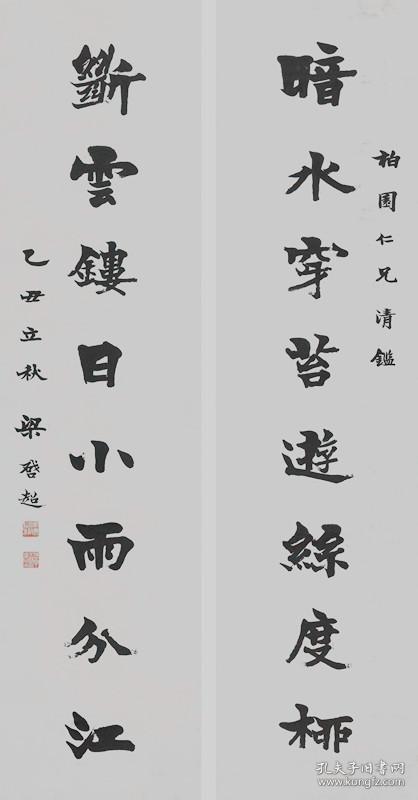 柏園仁兄清鑑
暗水穿苔遊絲度柳
斷雲鏤日小雨分江
乙丑立秋 梁啓超
孔夫子旧书网
www.kongfz.com